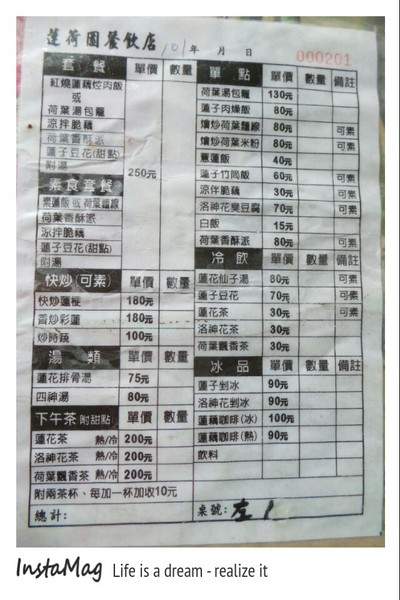 蓮荷園餐飲店 101年 月 日
000201
套餐 單價 數量
紅燒蓮藕焢肉飯
或
荷葉湯包麗
涼拌脆藕
荷葉香酥派
蓮子豆花(甜點)
附湯
250元
素食套餐
素蓮飯 或 荷葉麵線
荷葉香酥派
涼拌脆藕
蓮子豆花(甜點)
附湯
快炒(可素) 單價 數量
快炒蓮梗 180元
香炒彩蓮 180元
炒時蔬 100元
湯 類 單價 數量
蓮花排骨湯 75元
四神湯 80元
下午茶 附甜點 單價 數量
蓮花茶 熱/冷 200元
洛神花茶 熱/冷 200元
荷葉飄香茶 熱/冷 200元
附兩茶杯、每加一杯加收10元
總計:
單 點 單價 數量 備註
荷葉湯包麗 130元
蓮子肉燥飯 80元
燴炒荷葉麵線 80元 可素
燴炒荷葉米粉 80元 可素
蔥蓮飯 40元
蓮子竹筒飯 60元 可素
涼伴脆藕 30元 可素
洛神花臭豆腐 70元 可素
白飯 15元
荷葉香酥派 80元 可素
冷 飲 單價 數量 備註
蓮花仙子湯 80元 可素
蓮子豆花 70元 可素
蓮花茶 30元 可素
洛神花茶 30元
荷葉飄香茶 30元
冰 品 單價 數量 備註
蓮子剉冰 90元
洛神花剉冰 90元
蓮藕咖啡(冰) 100元
蓮藕咖啡(熱) 90元
飲料
桌號: 左1
InstaMag Life is a dream - realize it